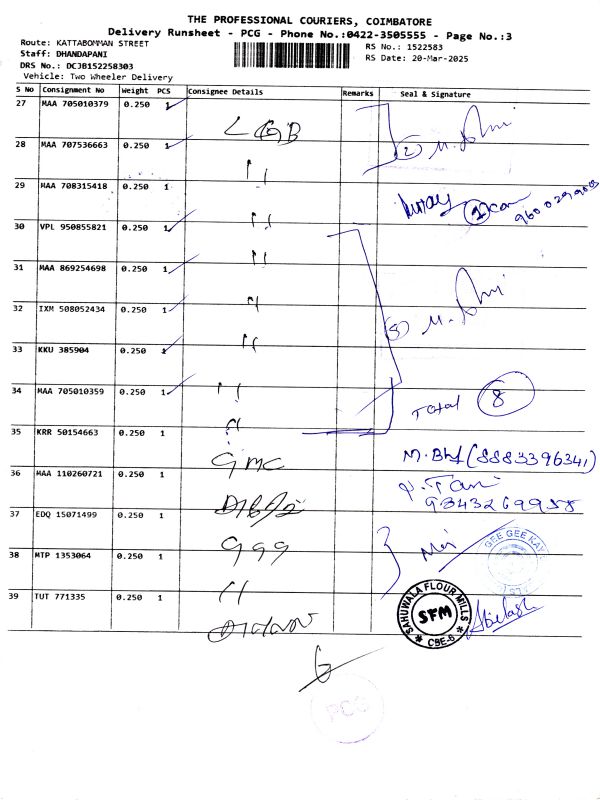 THE PROFESSIONAL COURIERS, COIMBATORE
Delivery Runsheet - PCG - Phone No.:0422-3505555 - Page No.:3
Route: KATTABOMMAN STREET
RS No.: 1522583
Staff: DHANDAPANI
RS Date: 20-Mar-2025
DRS No.: DCJB152258303
Vehicle: Two Wheeler Delivery
S No Consignment No Weight PCS Consignee Details Remarks Seal & Signature
27 MAA 705010379 0.250 1
LGB
(2) M.
28 MAA 707536663 0.250 1
"
29 MAA 708315418 0.250 1
9600299003
"
30 VPL 950855821 0.250 1
"
31 MAA 869254698 0.250 1
"
32 IXM 508052434 0.250 1
(5) M.
"
33 KKU 385904 0.250 1
"
34 MAA 705010359 0.250 1
Total 8
"
35 KRR 50154663 0.250 1
GMC
(8883396341)
36 MAA 110260721 0.250 1
9343269958
37 EDQ 15071499 0.250 1
999
GEE GEE KAY
38 MTP 1353064 0.250 1
"
39 TUT 771335 0.250 1
SAHUWALA FLOUR MILLS
SFM
CBE-6
Abilash
PCG